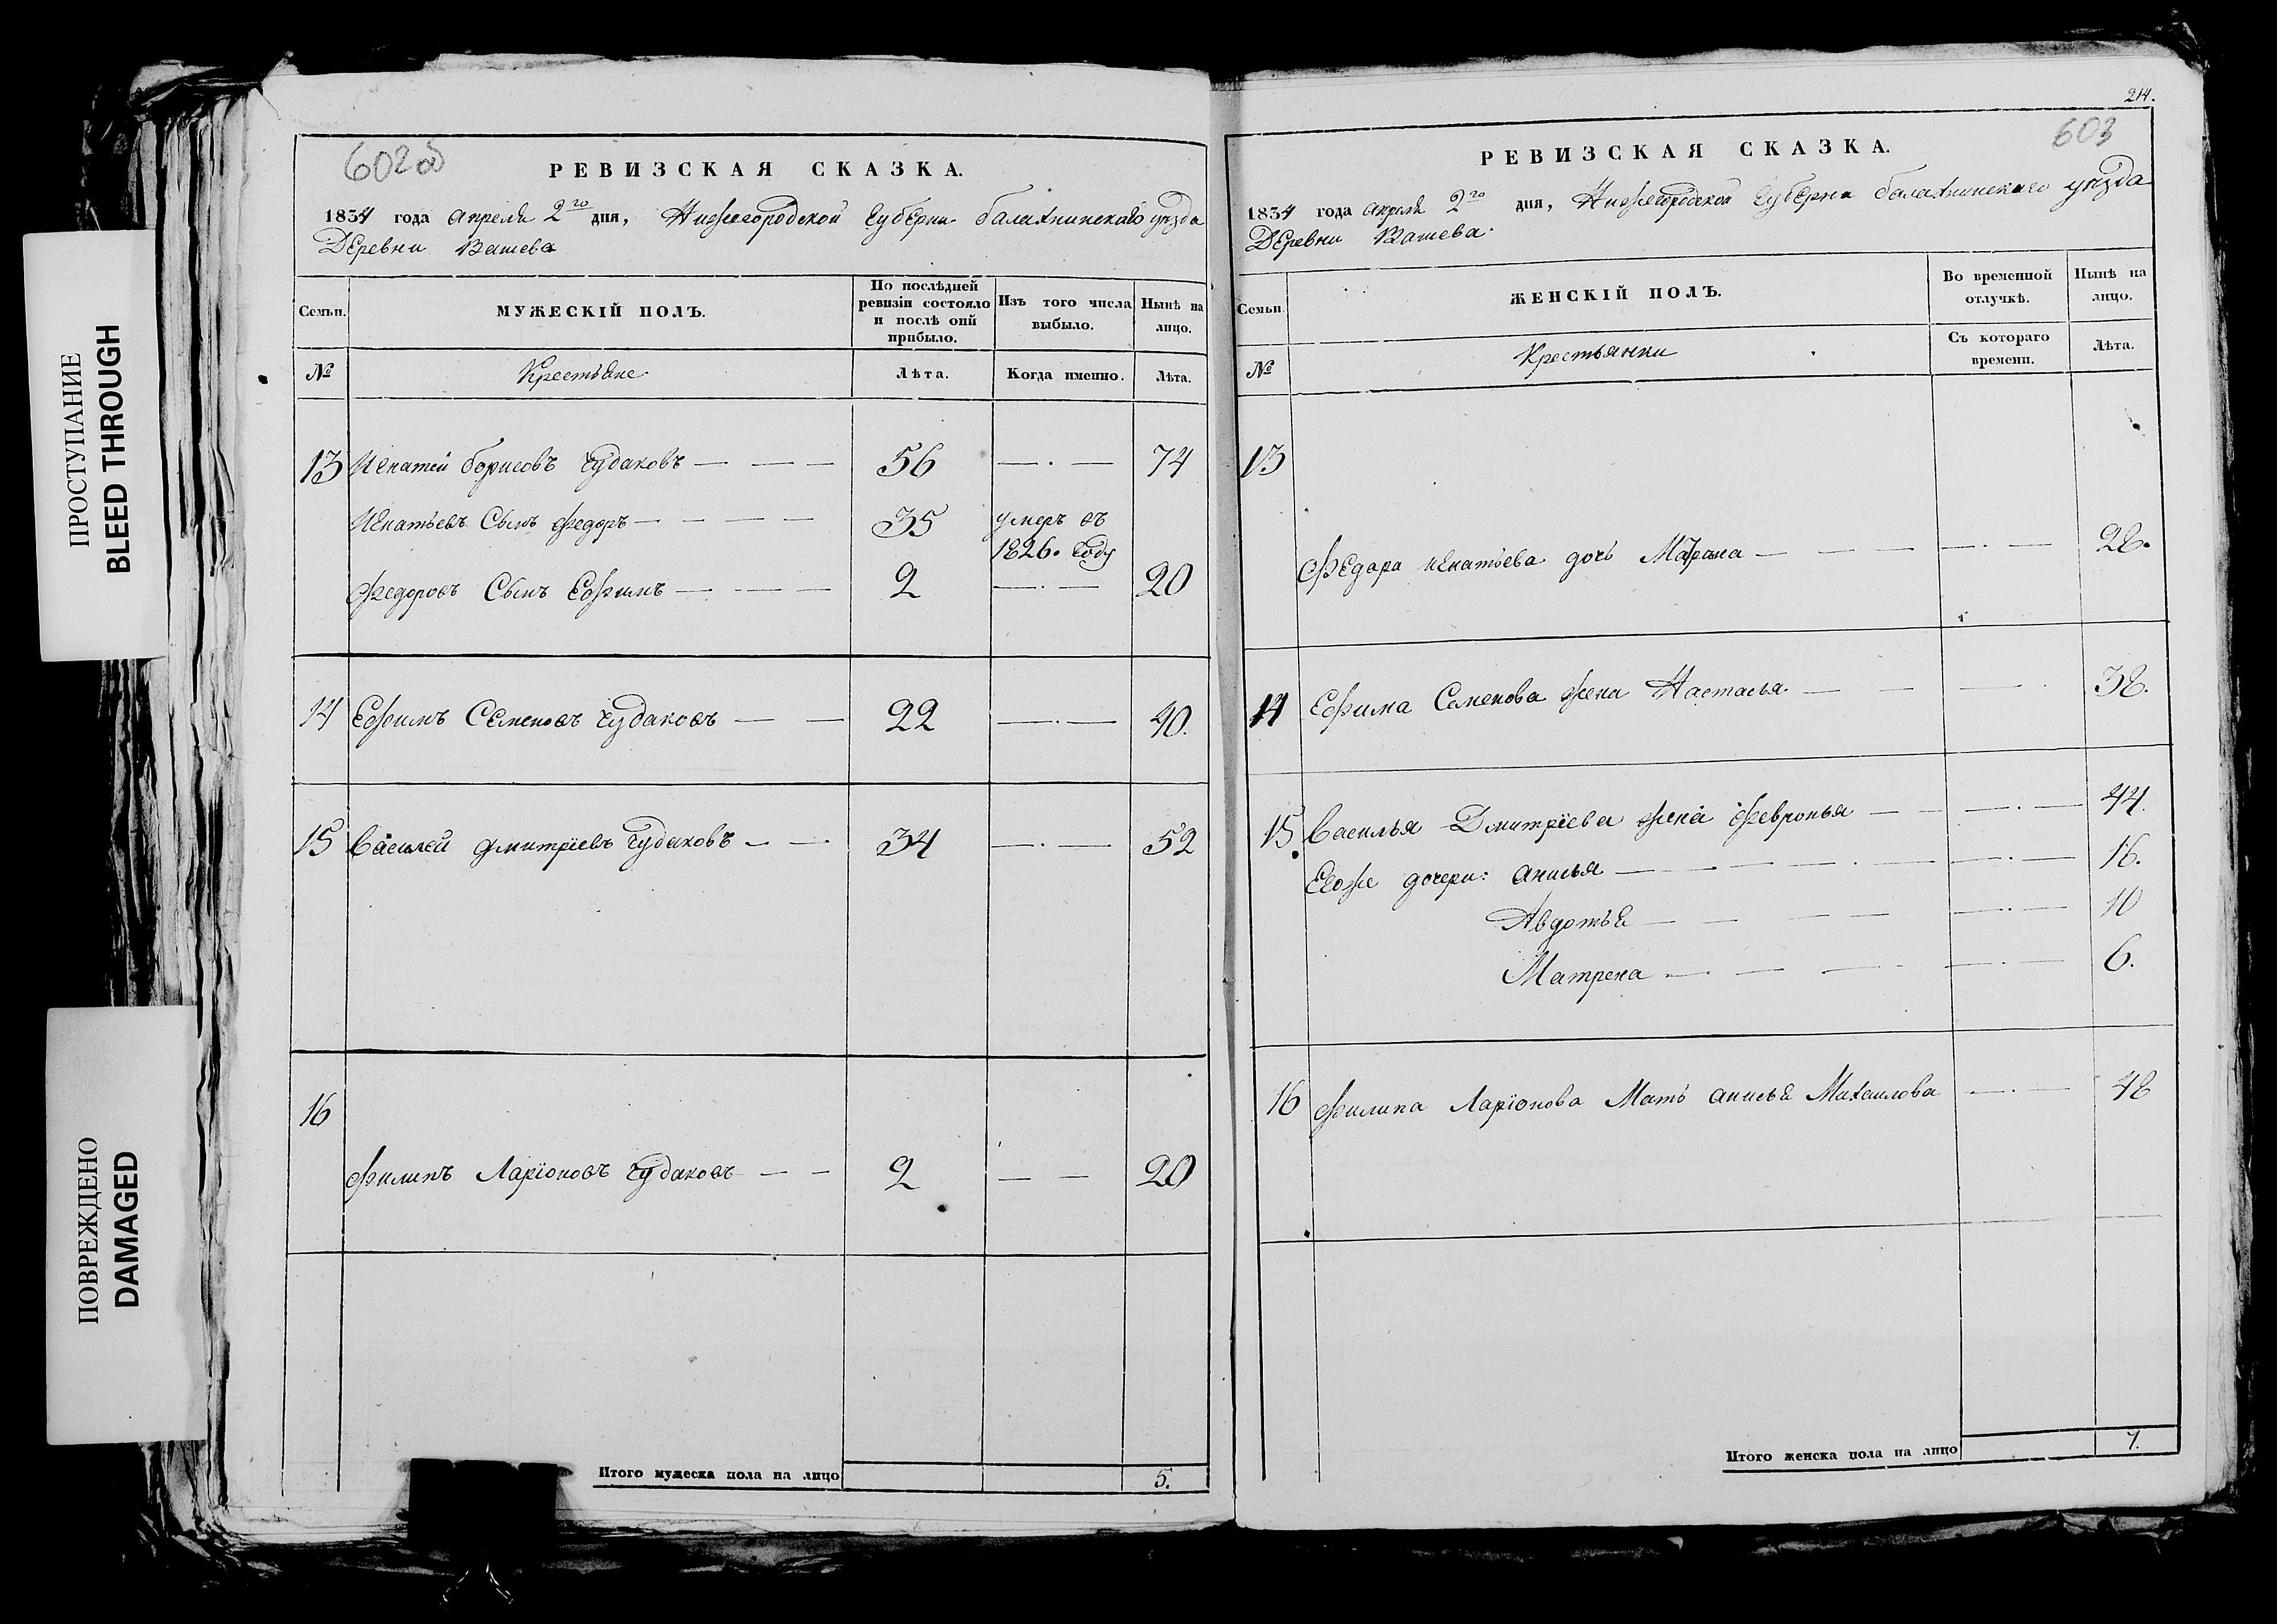 ПРОСТУПАНИЕ
BLEED THROUGH
ПОВРЕЖДЕНО
DAMAGED
602об
РЕВИЗСКАЯ СКАЗКА.
1834 года апреля 2го дня, Нижегородской губерни балахнинскаго уезда
Деревни Вашева
Семьи.
МУЖЕСКІЙ ПОЛЪ.
По послѣдней ревизіи состояло и послѣ оній прибыло.
Изъ того числа выбыло.
Нынѣ на лицо.
№
Крестьяне
Лѣта.
Когда именно.
Лѣта.
13 Игнатей борисовъ чудаковъ — — — 56 —.— 74
Игнатьевъ Сынъ Федоръ — — — — 35 умеръ въ 1826. году
Федоровъ Сынъ Ефимъ — — — 2 —.— 20
14 Ефимъ Семеновъ чудаковъ — — 22 —.— 40.
15 Василей дмитріевъ чудаковъ — — 34 —.— 52
16
Филипъ Ларіоновъ чудаковъ — — 2 — — 20
Итого мужеска пола на лицо 5.
214.
603
РЕВИЗСКАЯ СКАЗКА.
1834 года апреля 2го дня, Нижегородской губерни балахнинскаго уезда
Деревни Вашева.
Семьи
ЖЕНСКІЙ ПОЛЪ.
Во временной отлучкѣ.
Нынѣ на лицо.
№
Крестьянки
Съ котораго времени.
Лѣта.
13
Федара игнатьева дочь Марина — — — —.— 28.
14 Ефима Семенова жена Настасья — — — 38.
15 Василья Дмитріева жена Февронья — — —.— 44.
Егоже дочери: анисья — — — — —.— 16.
Авдотья — — — — —.— 10
Матрена — — — —.— 6.
16 Филипа Ларіонова Мать анисья Михаилова —.— 48
Итого женска пола на лицо 7.